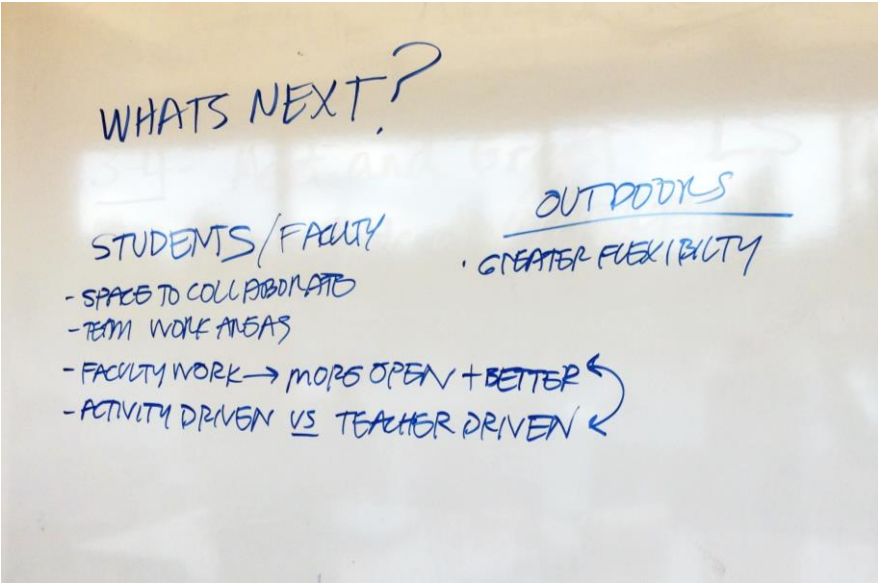 WHATS NEXT?
STUDENTS/FACULTY
- SPACE TO COLLABORATE
- TEAM WORK AREAS
- FACULTY WORK → MORE OPEN + BETTER
- ACTIVITY DRIVEN VS TEACHER DRIVEN
OUTDOORS
· GREATER FLEXIBILTY